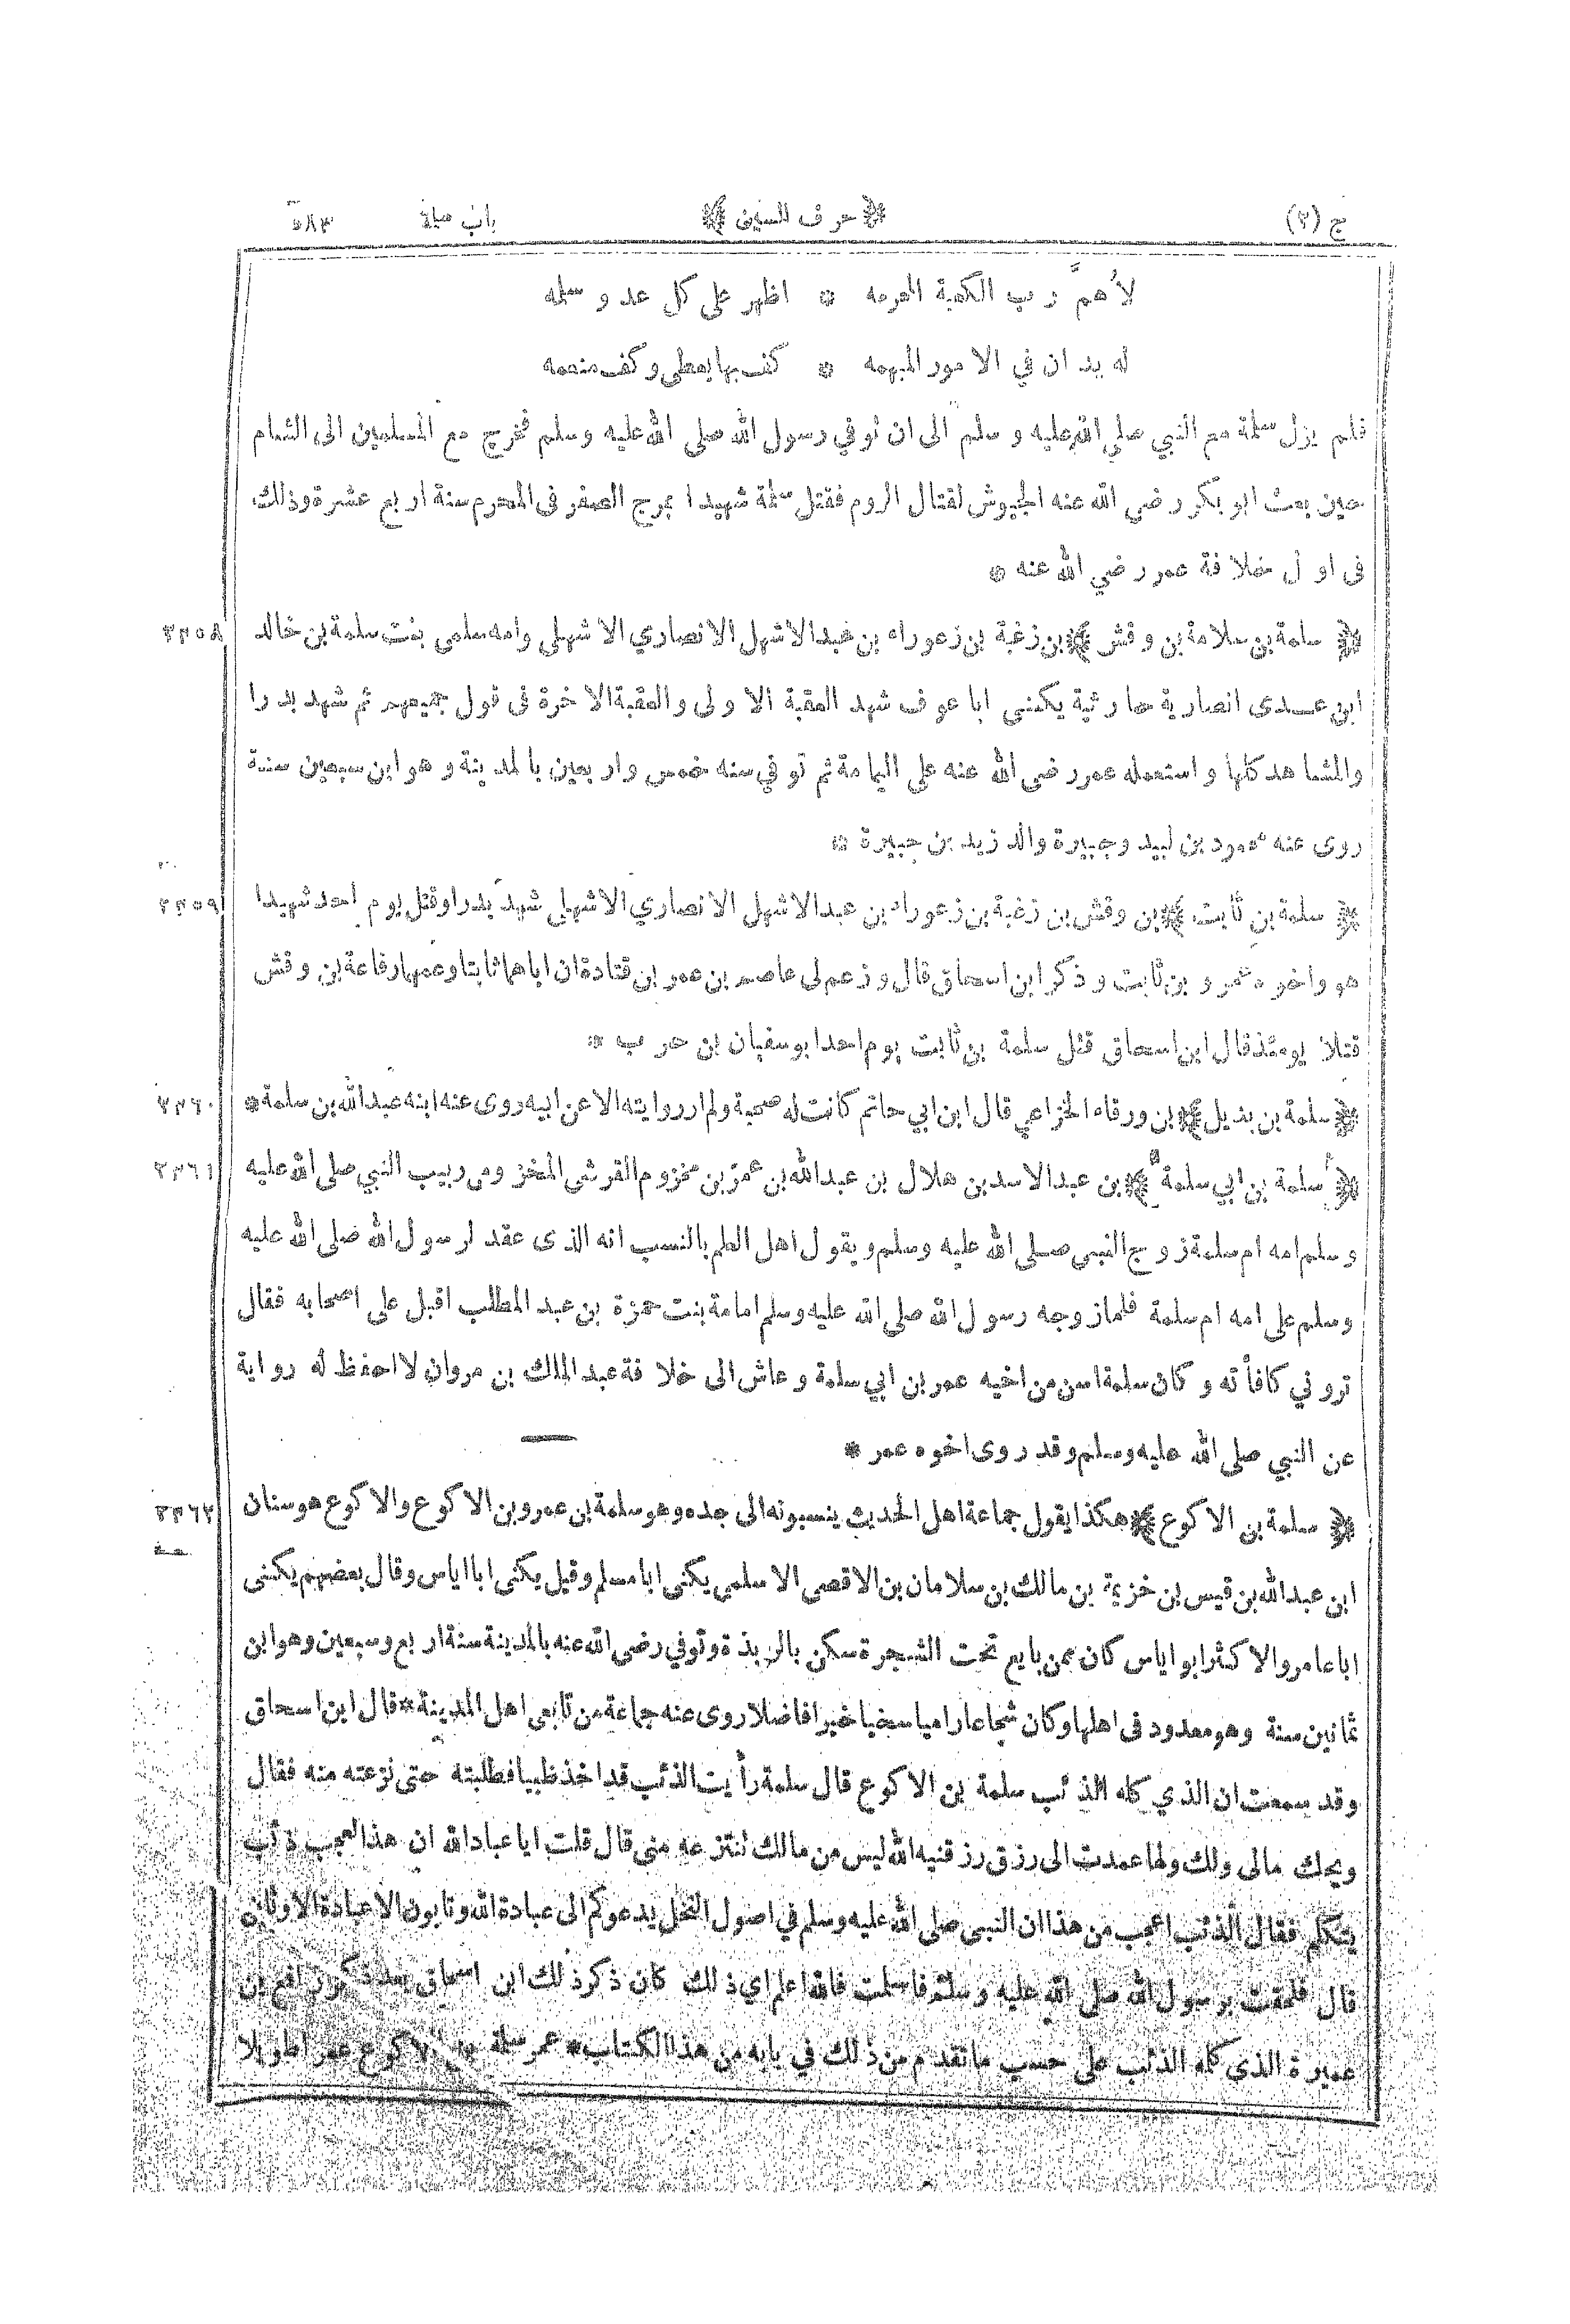 ج (٢) ﴿ حرف السين ﴾ باب سلمة ٥٨٣
لاهمَّ رب الكعبة المحرمه * اظهر على كل عد و سلمه
له يد ان في الا مور المبهمه * كف بها يعطى و كف منعمه
فلم يزل سلمة مع النبي صلى الله عليه و سلم الى ان توفي رسول الله صلى الله عليه وسلم فخرج مع المسلمين الى الشام
حين بعث ابو بكر رضي الله عنه الجيوش لقتال الروم فقتل سلمة شهيد ا بمرج الصفر فى المحرم سنة اربع عشرة وذلك
فى او ل خلا فة عمر رضي الله عنه *
﴿ سلمة بن سلامة بن وقش ﴾ بن زغبة بن زعوراء بن عبد الاشهل الانصاري الا شهلى وامه سلمى بنت سلمة بن خالد ٢٣٥٨
ابن عدى انصارية حارثية يكنى ابا عوف شهد العقبة الا ولى والعقبة الا خرة فى قول جميعهم ثم شهد بد را
والمشا هد كلها و استعمله عمر رضى الله عنه على اليمامة ثم توفي سنه خمس واربعين بالمدينة وهو ابن سبعين سنة
روى عنه محمود بن لبيد وجبيرة والد زيد بن جبيرة *
﴿ سلمة بن ثابت ﴾ بن وقش بن زغبة بن زعوراء بن عبد الاشهل الانصاري الاشهلى شهد بدرا وقتل يوم احد شهيدا ٢٣٥٩
هو واخوه عمرو بن ثابت و ذكر ابن اسحاق قال و زعم لى عاصم بن عمر بن قتادة ان اباهما ثابتا وعمهما رفاعة بن وقش
قتلا يومئذ قال ابن اسحاق قتل سلمة بن ثابت يوم احد ابو سفيان بن حرب *
﴿ سلمة بن بديل ﴾ بن ورقاء الخزاعي قال ابن ابي حاتم كانت له صحبة ولم ار روايته الا عن ابيه روى عنه ابنه عبد الله بن سلمة * ٢٣٦٠
﴿ سلمة بن ابي سلمة ﴾ بن عبد الاسد بن هلال بن عبد الله بن عمر بن مخزوم القرشى المخزومى ربيب النبي صلى الله عليه ٢٣٦١
و سلم امه ام سلمة زوج النبي صلى الله عليه وسلم ويقول اهل العلم بالنسب انه الذى عقد لرسول الله صلى الله عليه
وسلم على امه ام سلمة فلما زوجه رسول الله صلى الله عليه وسلم امامة بنت حمزة بن عبد المطلب اقبل على اصحابه فقال
تروني كافأته وكان سلمة اسن من اخيه عمر بن ابي سلمة وعاش الى خلافة عبد الملك بن مروان لا احفظ له رواية
عن النبي صلى الله عليه وسلم وقد روى اخوه عمر *
﴿ سلمة بن الاكوع ﴾ هكذا يقول جماعة اهل الحديث ينسبونه الى جده وهو سلمة بن عمرو بن الاكوع والاكوع هو سنان ٢٣٦٢
ابن عبد الله بن قيس بن خزيمة بن مالك بن سلامان بن الاقصى الاسلمي يكنى ابا مسلم وقيل يكنى ابا اياس وقال بعضهم يكنى
ابا عامر والاكثر ابو اياس كان ممن بايع تحت الشجرة سكن بالربذة وتوفي رضى الله عنه بالمدينة سنة اربع وسبعين وهو ابن
ثمانين سنة وهو معدود فى اهلها وكان شجاعا راميا سخيا خيرا فاضلا روى عنه جماعة من تابعى اهل المدينة * قال ابن اسحاق
وقد سمعت ان الذي كلمه الذئب سلمة بن الاكوع قال سلمة رأيت الذئب قد اخذ ظبيا فطلبته حتى نزعته منه فقال
ويحك مالى ولك ولها عمدت الى رزق رزقنيه الله ليس من مالك تنتزعه منى قال قلت ايا عباد الله ان هذا لعجب ذئب
يتكلم فقال الذئب اعجب من هذا ان النبى صلى الله عليه وسلم في اصول النخل يدعوكم الى عبادة الله وتابون الا عبادة الاوثان
قال فلحقت برسول الله صلى الله عليه وسلم فاسلمت فالله اعلم اي ذلك كان ذكر ذلك ابن اسحاق بعد ذكر رافع بن
عميرة الذي كلمه الذئب على حسب ما تقدم من ذلك في بابه من هذا الكتاب * عمر سلمة بن الاكوع عمرا طويلا